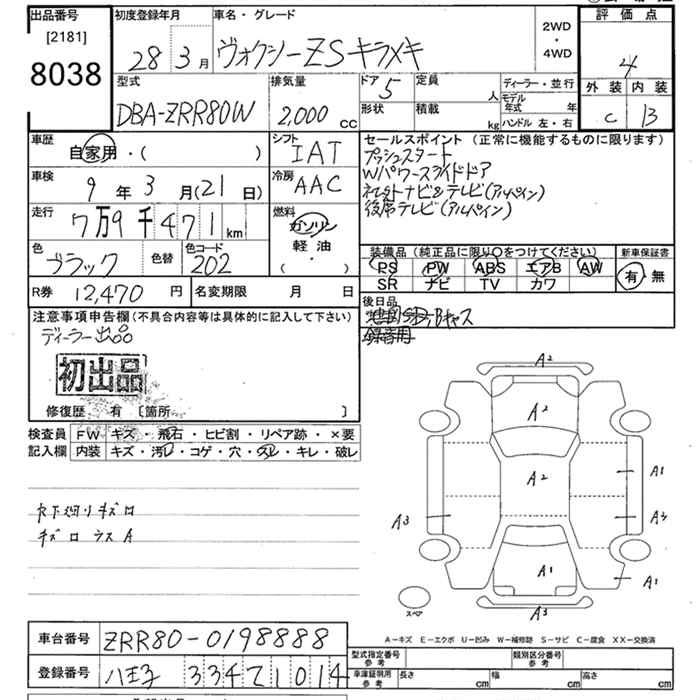 出品番号
[2181]
8038
初度登録年月
28 3月
車名・グレード
ヴォクシーZSキラメキ
2WD
・
4WD
評価点
4
外装 内装
C B
型式
DBA-ZRR80W
排気量
2,000 CC
ドア
5
形状
定員
人
積載
kg
ディーラー・並行
モデル年式 年
ハンドル 左・右
車歴
自家用・( )
シフト
IAT
車検
9年3月(21日)
冷房
AAC
走行
7万9千471km
燃料
ガソリン
軽油・
( )
色
ブラック
色替
色コード
202
R券 12,470円
名変期限 月 日
セールスポイント (正常に機能するものに限ります)
プッシュスタート
Wパワースライドドア
ナビ&テレビ(アルパイン)
後席テレビ(アルパイン)
装備品(純正品に限り○をつけてください)
PS PW ABS エアB AW
SR ナビ TV カワ
新車保証書
有 無
後日品
録音用
注意事項申告欄(不具合内容等は具体的に記入して下さい)
ディーラー出品
初出品
修復歴 有 〔箇所 〕
検査員記入欄
FW キズ・飛石・ヒビ割・リペア跡・×要
内装 キズ・汚・コゲ・穴・スレ・キレ・破レ
下廻りキズロ
キズロウスA
A2
A2
A2
A1
A3
A2
A1
A1
A3
スペア
A-キズ E-エクボ U-凹み W-補修跡 S-サビ C-腐食 XX-交換済
車台番号 ZRR80-0198888
登録番号 八王子 334 1014
型式指定番号 参考
類別区分番号 参考
車庫証明用 参考 長さ cm 幅 cm 高さ cm